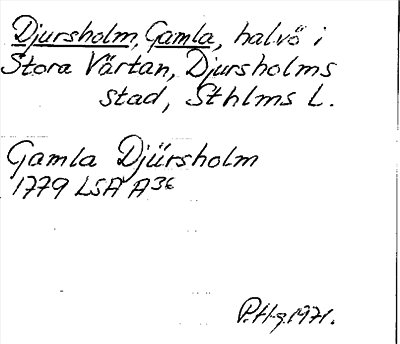 Djursholm, Gamla, halvö i
Stora Värtan, Djursholms
stad, Sthlms L.
Gamla Djürsholm
1779 LSA A36
P.H-g.1971.